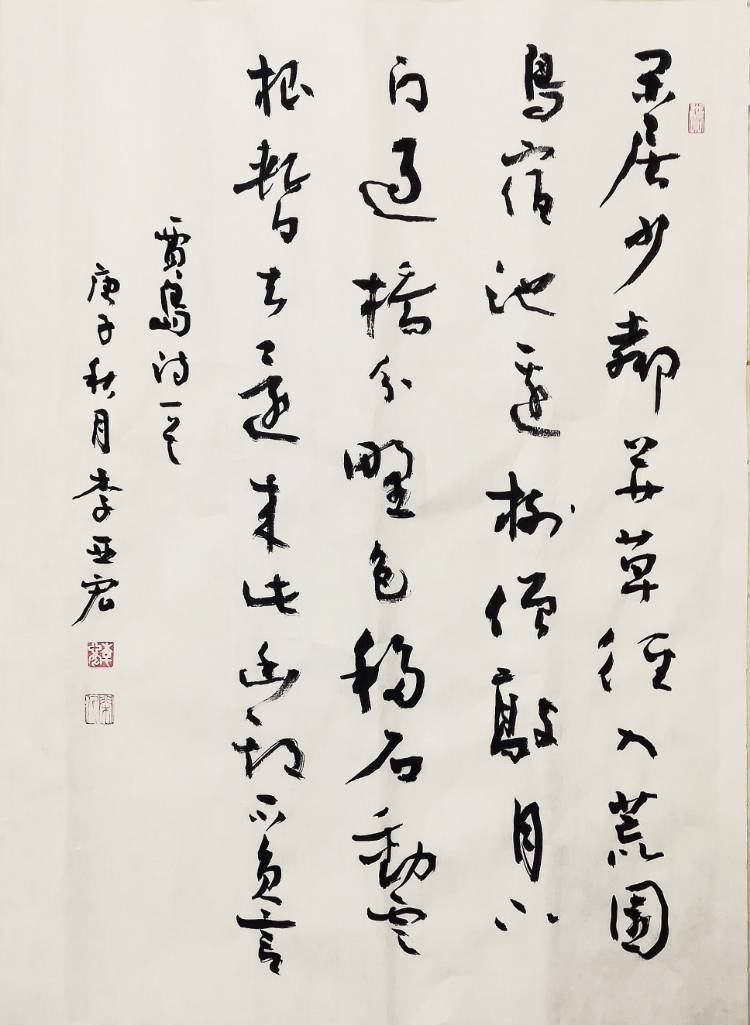 閑居少鄰并草徑入荒園
鳥宿池邊樹僧敲月下
門過橋分野色移石動雲
根暫去還來此幽期不負言
賈島詩一首
庚子秋月李亞